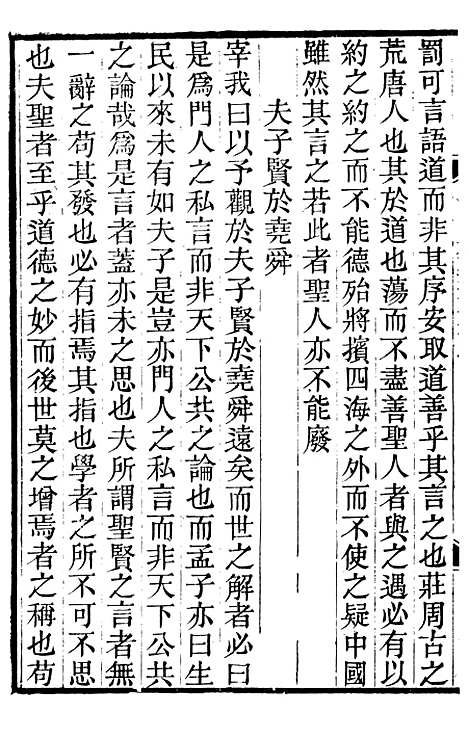 罰可言語道而非其序安取道善乎其言之也莊周古之
荒唐人也其於道也蕩而不盡善聖人者與之遇必有以
約之約之而不能德殆將擯四海之外而不使之疑中國
雖然其言之若此者聖人亦不能廢
夫子賢於堯舜
宰我曰以予觀於夫子賢於堯舜遠矣而世之解者必曰
是爲門人之私言而非天下公共之論也而孟子亦曰生
民以來未有如夫子是豈亦門人之私言而非天下公共
之論哉爲是言者蓋亦未之思也夫所謂聖賢之言者無
一辭之苟其發也必有指焉其指也學者之所不可不思
也夫聖者至乎道德之妙而後世莫之增焉者之稱也苟